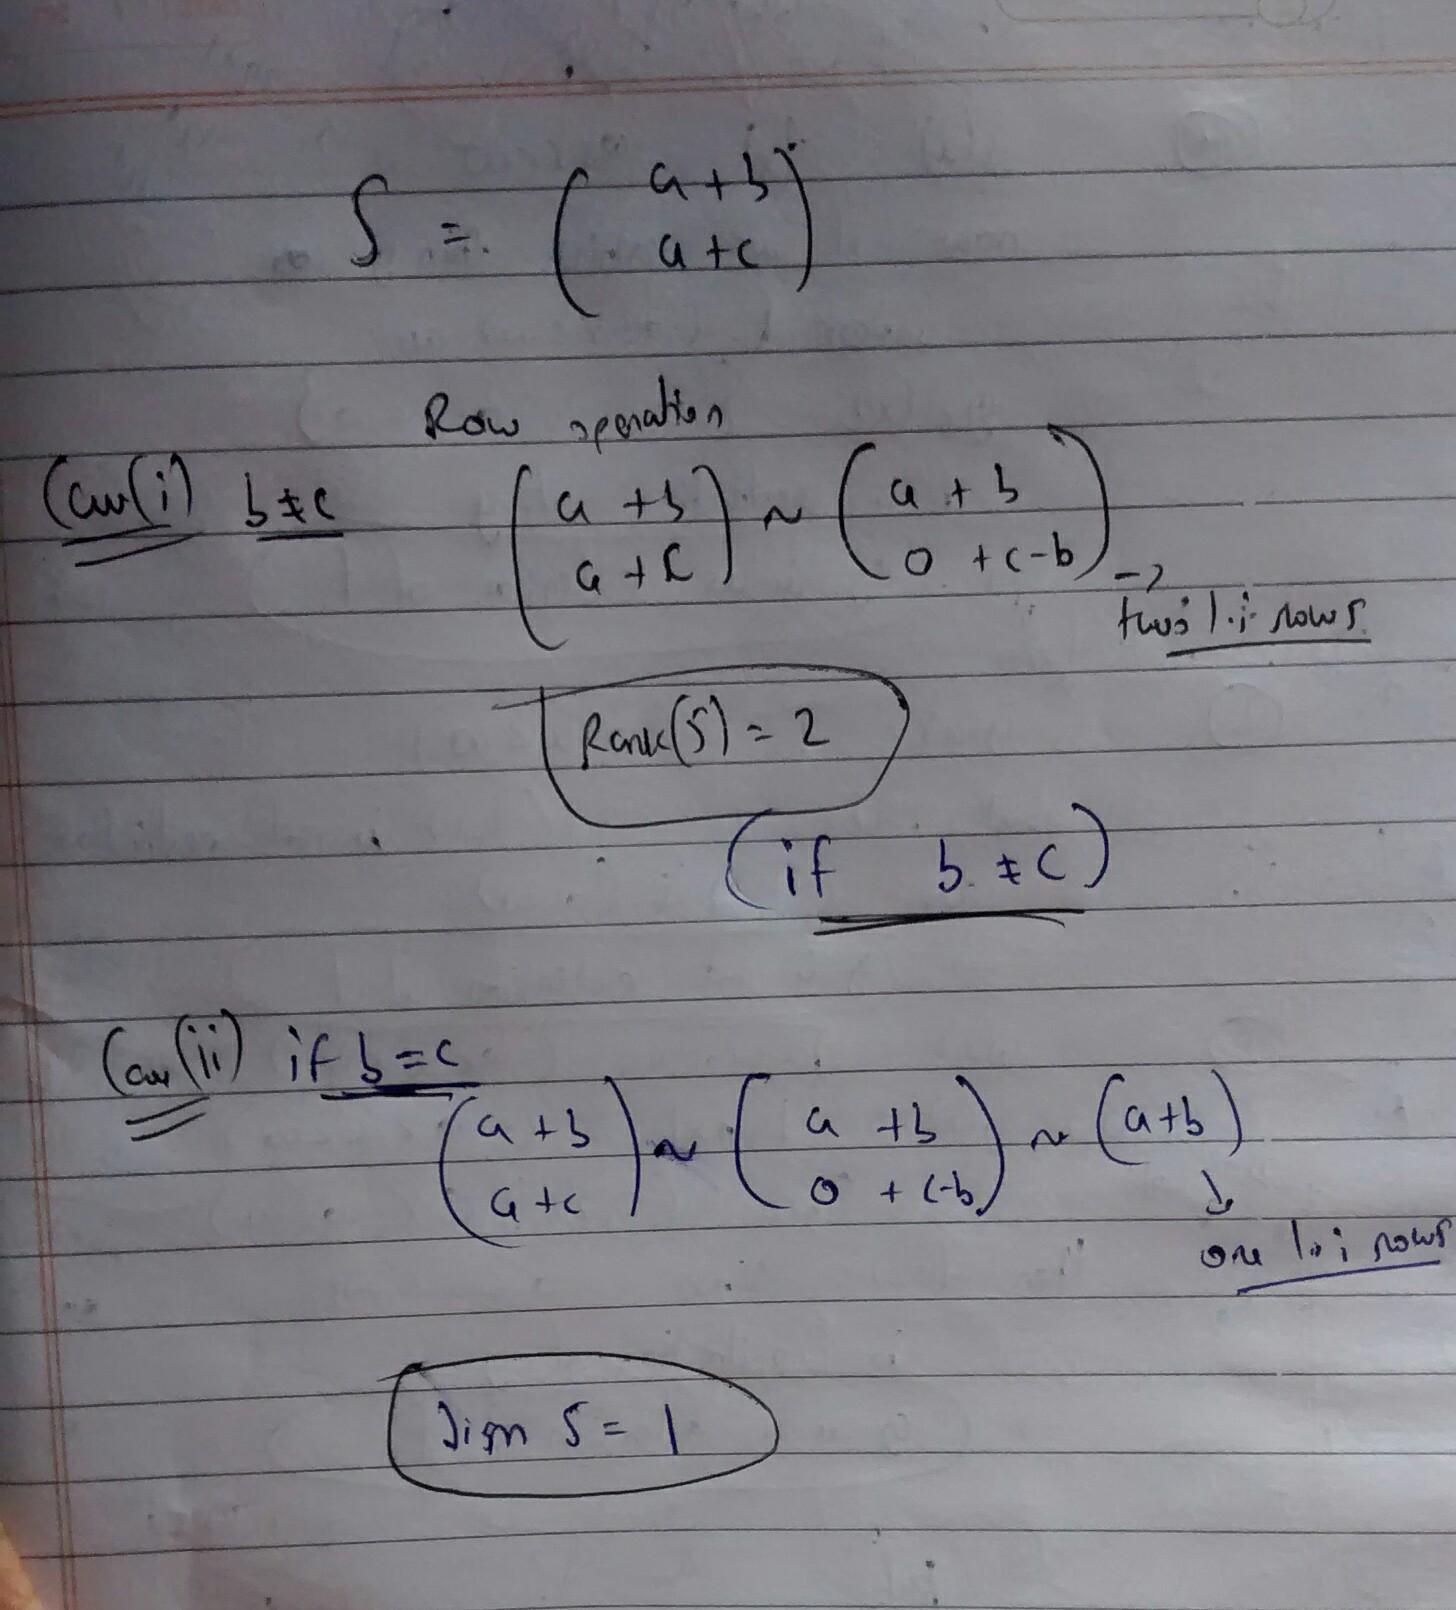 S = ( a+b
a+c )
Row operation
Case(i) b≠c ( a +b ~ ( a + b
a +c ) 0 +c-b ) →
two l.i rows
Rank(S) = 2
(if b ≠ c)
Case(ii) if b=c
( a +b ~ ( a +b ~ (a+b)
a +c ) 0 + c-b )
one l.i rows
Dim S = 1